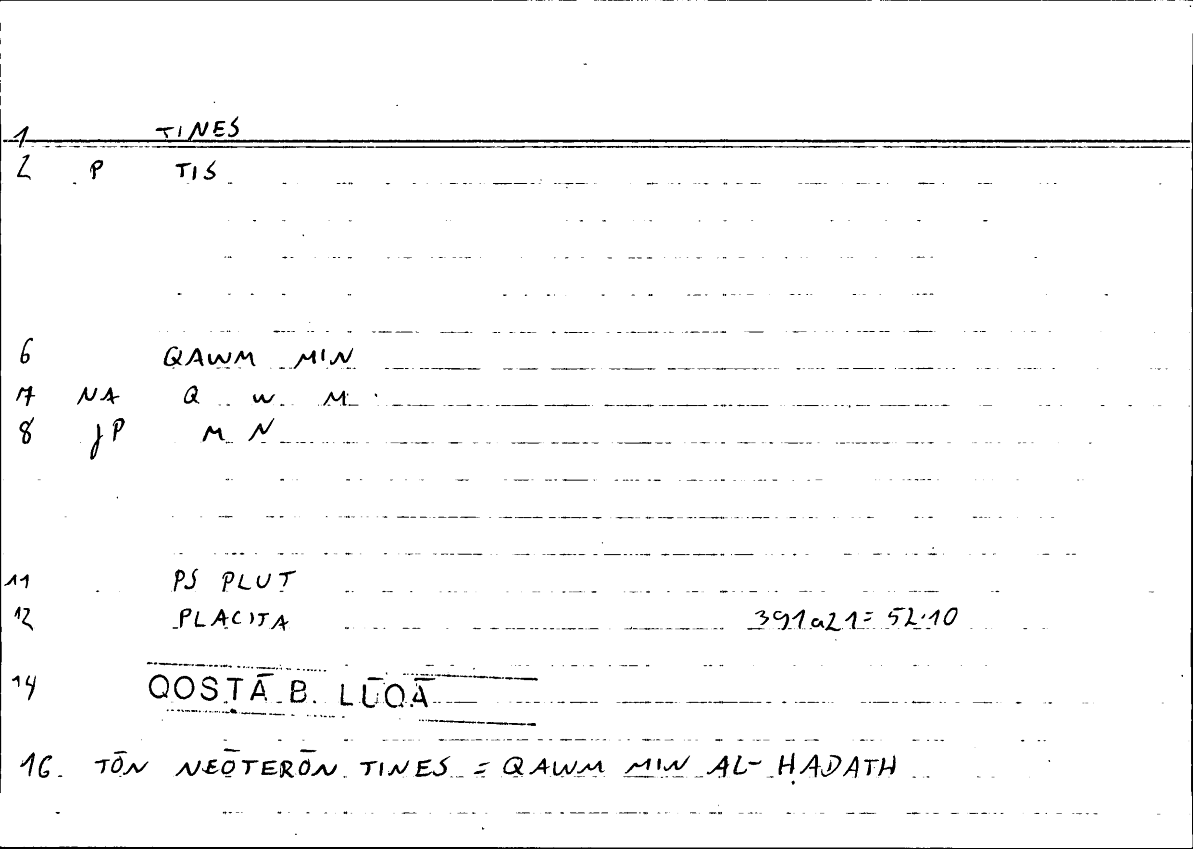 1 TINES
2 P TIS
6 QAWM MIN
7 NA Q W M
8 JP M N
11 PS PLUT
12 PLACITA 391a21 = 52.10
14 QOSṬĀ B. LŪQĀ
16. TŌN NEŌTERŌN TINES = QAWM MIN AL-ḤADATH